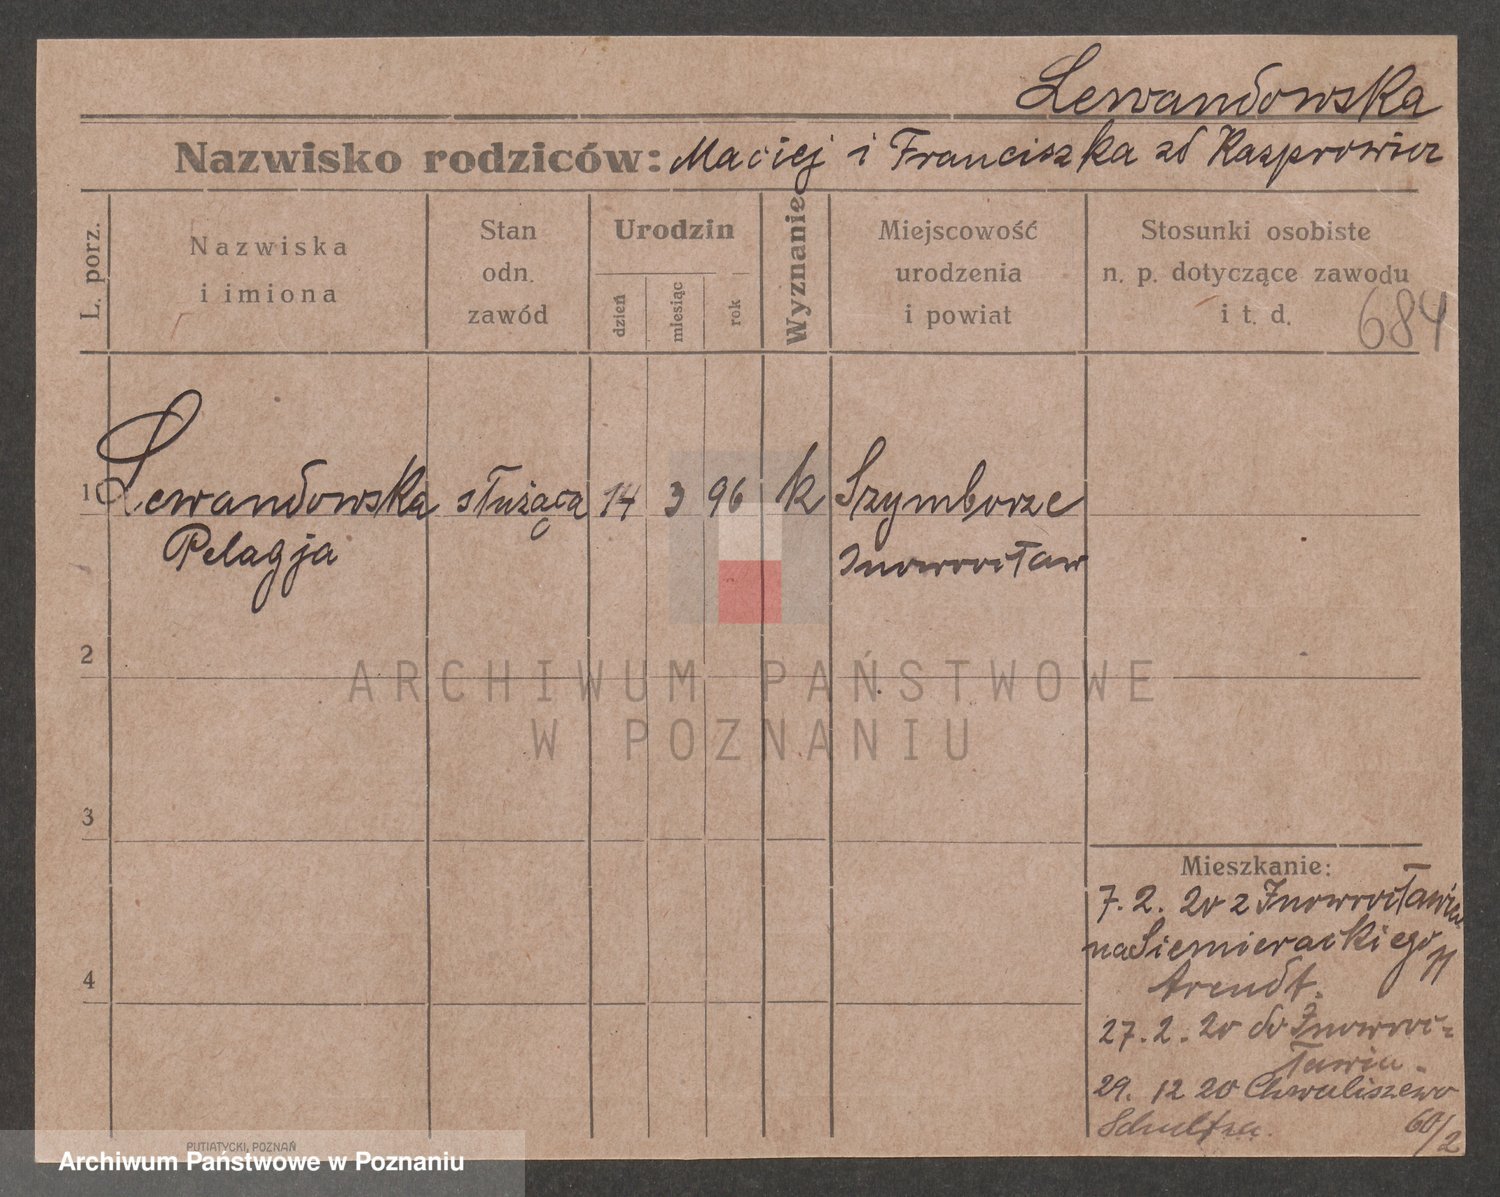 Lewandowska
Nazwisko rodziców: Maciej i Franciszka zd Kasprowicz
L. porz.
Nazwiska
i imiona
Stan
odn.
zawód
Urodzin
dzień
miesiąc
rok
Wyznanie
Miejscowość
urodzenia
i powiat
Stosunki osobiste
n. p. dotyczące zawodu
i t. d.
684
1 Lewandowska służąca 14 3 96 k Szymborze
Pelagja Inowrocław
2
ARCHIWUM PAŃSTWOWE
W POZNANIU
3
Mieszkanie:
7. 2. 20 z Inowrocławia
na Siemierackiego 11
Arendt.
4
27. 2. 20 do Inowroc-
ławia.
29. 12 20 Chwaliszewo
60/2
PUTIATYCKI, POZNAŃ
Archiwum Państwowe w Poznaniu